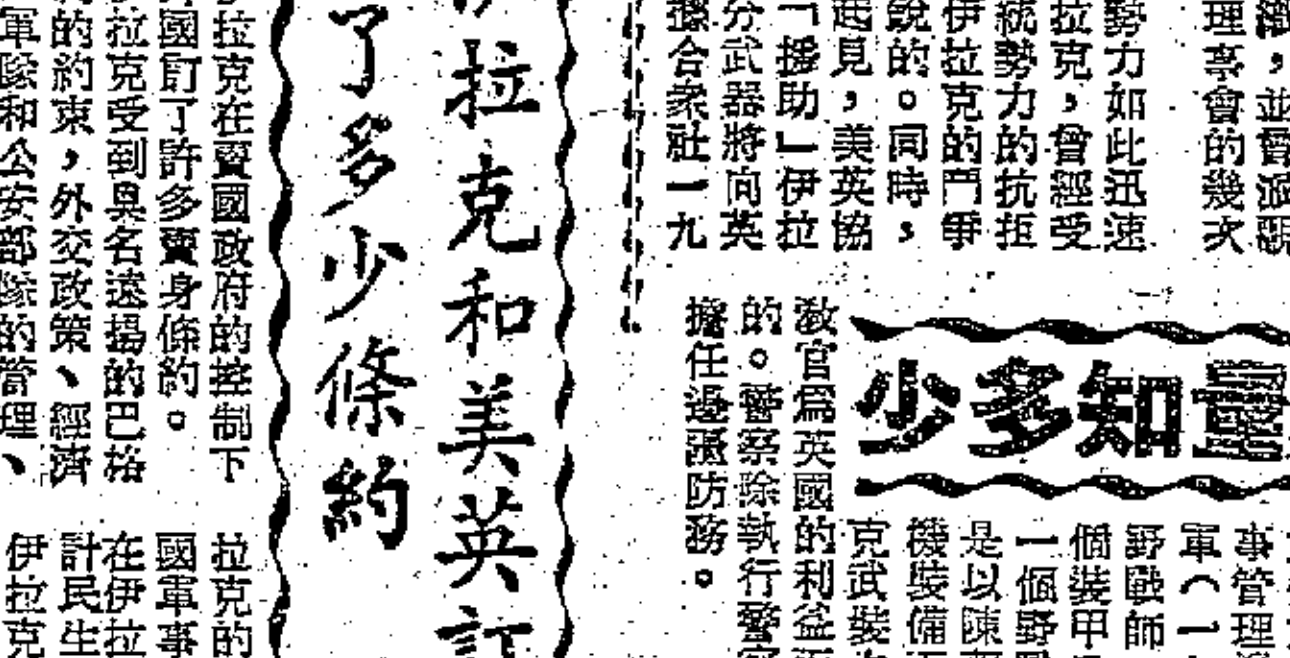 理事會的幾次
勢力如此迅速
拉克，曾經受
統勢力的抗拒
伊拉克的鬥爭
銳的。同時，
起見，美英協
「援助」伊拉
分武器將向英
據合衆社一九
量知多少
事管理
軍（一
野戰師
個裝甲
一個野戰
是以陳
機裝備
克武裝
教官爲英國的利益
的。警察除執行警察
擔任邊疆防務。
伊拉克和美英訂
了多少條約
拉克在賣國政府的控制下
國訂了許多賣身條約。
拉克受到臭名遠揚的巴格
的約束，外交政策、經濟
軍隊和公安部隊的管理、
拉克的
國軍事
在伊拉
計民生
伊拉克